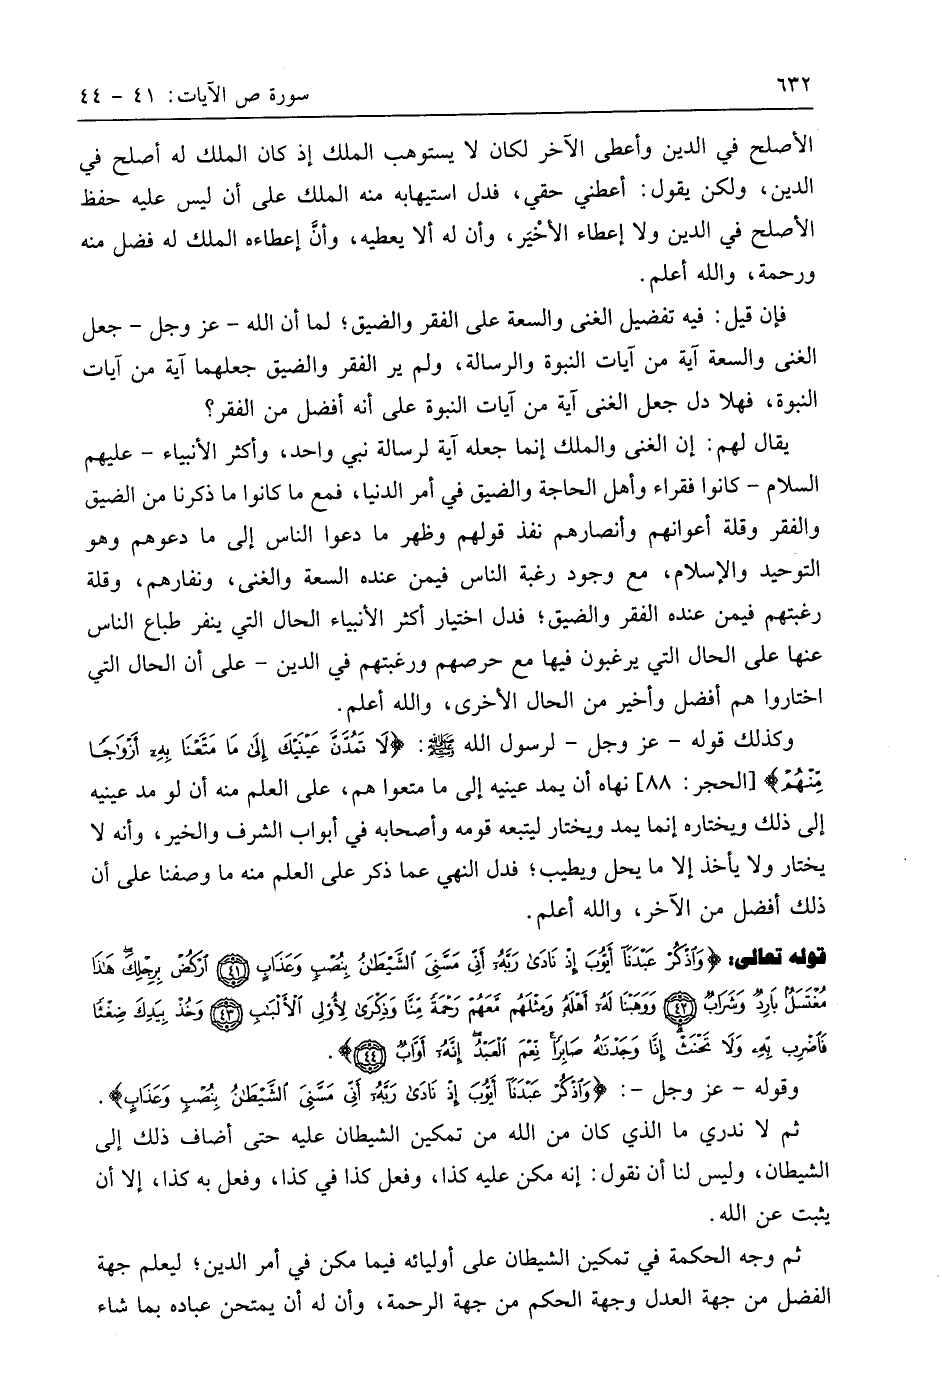 ٦٣٢
سورة ص الآيات: ٤١ - ٤٤
الأصلح في الدين وأعطى الآخر لكان لا يستوهب الملك إذ كان الملك له أصلح في
الدين، ولكن يقول: أعطني حقي، فدل استيهابه منه الملك على أن ليس عليه حفظ
الأصلح في الدين ولا إعطاء الأخْيَر، وأن له ألا يعطيه، وأنَّ إعطاءه الملك له فضل منه
ورحمة، والله أعلم.
فإن قيل: فيه تفضيل الغنى والسعة على الفقر والضيق؛ لما أن الله - عز وجل - جعل
الغنى والسعة آية من آيات النبوة والرسالة، ولم ير الفقر والضيق جعلهما آية من آيات
النبوة، فهلا دل جعل الغنى آية من آيات النبوة على أنه أفضل من الفقر؟
يقال لهم: إن الغنى والملك إنما جعله آية لرسالة نبي واحد، وأكثر الأنبياء - عليهم
السلام - كانوا فقراء وأهل الحاجة والضيق في أمر الدنيا، فمع ما كانوا ما ذكرنا من الضيق
والفقر وقلة أعوانهم وأنصارهم نفذ قولهم وظهر ما دعوا الناس إلى ما دعوهم وهو
التوحيد والإسلام، مع وجود رغبة الناس فيمن عنده السعة والغنى، ونفارهم، وقلة
رغبتهم فيمن عنده الفقر والضيق؛ فدل اختيار أكثر الأنبياء الحال التي ينفر طباع الناس
عنها على الحال التي يرغبون فيها مع حرصهم ورغبتهم في الدين - على أن الحال التي
اختاروا هم أفضل وأخير من الحال الأخرى، والله أعلم.
وكذلك قوله - عز وجل - لرسول الله ﷺ: ﴿لَا تَمُدَّنَّ عَيْنَيْكَ إِلَىٰ مَا مَتَّعْنَا بِهِۦٓ أَزْوَٰجًا
مِّنْهُمْ﴾ [الحجر: ٨٨] نهاه أن يمد عينيه إلى ما متعوا هم، على العلم منه أن لو مد عينيه
إلى ذلك ويختاره إنما يمد ويختار ليتبعه قومه وأصحابه في أبواب الشرف والخير، وأنه لا
يختار ولا يأخذ إلا ما يحل ويطيب؛ فدل النهي عما ذكر على العلم منه ما وصفنا على أن
ذلك أفضل من الآخر، والله أعلم.
قوله تعالى: ﴿وَٱذْكُرْ عَبْدَنَآ أَيُّوبَ إِذْ نَادَىٰ رَبَّهُۥٓ أَنِّى مَسَّنِىَ ٱلشَّيْطَٰنُ بِنُصْبٍ وَعَذَابٍ ٤١ ٱرْكُضْ بِرِجْلِكَ ۖ هَٰذَا
مُغْتَسَلٌۢ بَارِدٌ وَشَرَابٌ ٤٢ وَوَهَبْنَا لَهُۥٓ أَهْلَهُۥ وَمِثْلَهُم مَّعَهُمْ رَحْمَةً مِّنَّا وَذِكْرَىٰ لِأُو۟لِى ٱلْأَلْبَٰبِ ٤٣ وَخُذْ بِيَدِكَ ضِغْثًا
فَٱضْرِب بِّهِۦ وَلَا تَحْنَثْ ۗ إِنَّا وَجَدْنَٰهُ صَابِرًا ۚ نِّعْمَ ٱلْعَبْدُ ۖ إِنَّهُۥٓ أَوَّابٌ ٤٤﴾.
وقوله - عز وجل -: ﴿وَٱذْكُرْ عَبْدَنَآ أَيُّوبَ إِذْ نَادَىٰ رَبَّهُۥٓ أَنِّى مَسَّنِىَ ٱلشَّيْطَٰنُ بِنُصْبٍ وَعَذَابٍ﴾.
ثم لا ندري ما الذي كان من الله من تمكين الشيطان عليه حتى أضاف ذلك إلى
الشيطان، وليس لنا أن نقول: إنه مكن عليه كذا، وفعل كذا في كذا، وفعل به كذا، إلا أن
يثبت عن الله.
ثم وجه الحكمة في تمكين الشيطان على أوليائه فيما مكن في أمر الدين؛ ليعلم جهة
الفضل من جهة العدل وجهة الحكم من جهة الرحمة، وأن له أن يمتحن عباده بما شاء